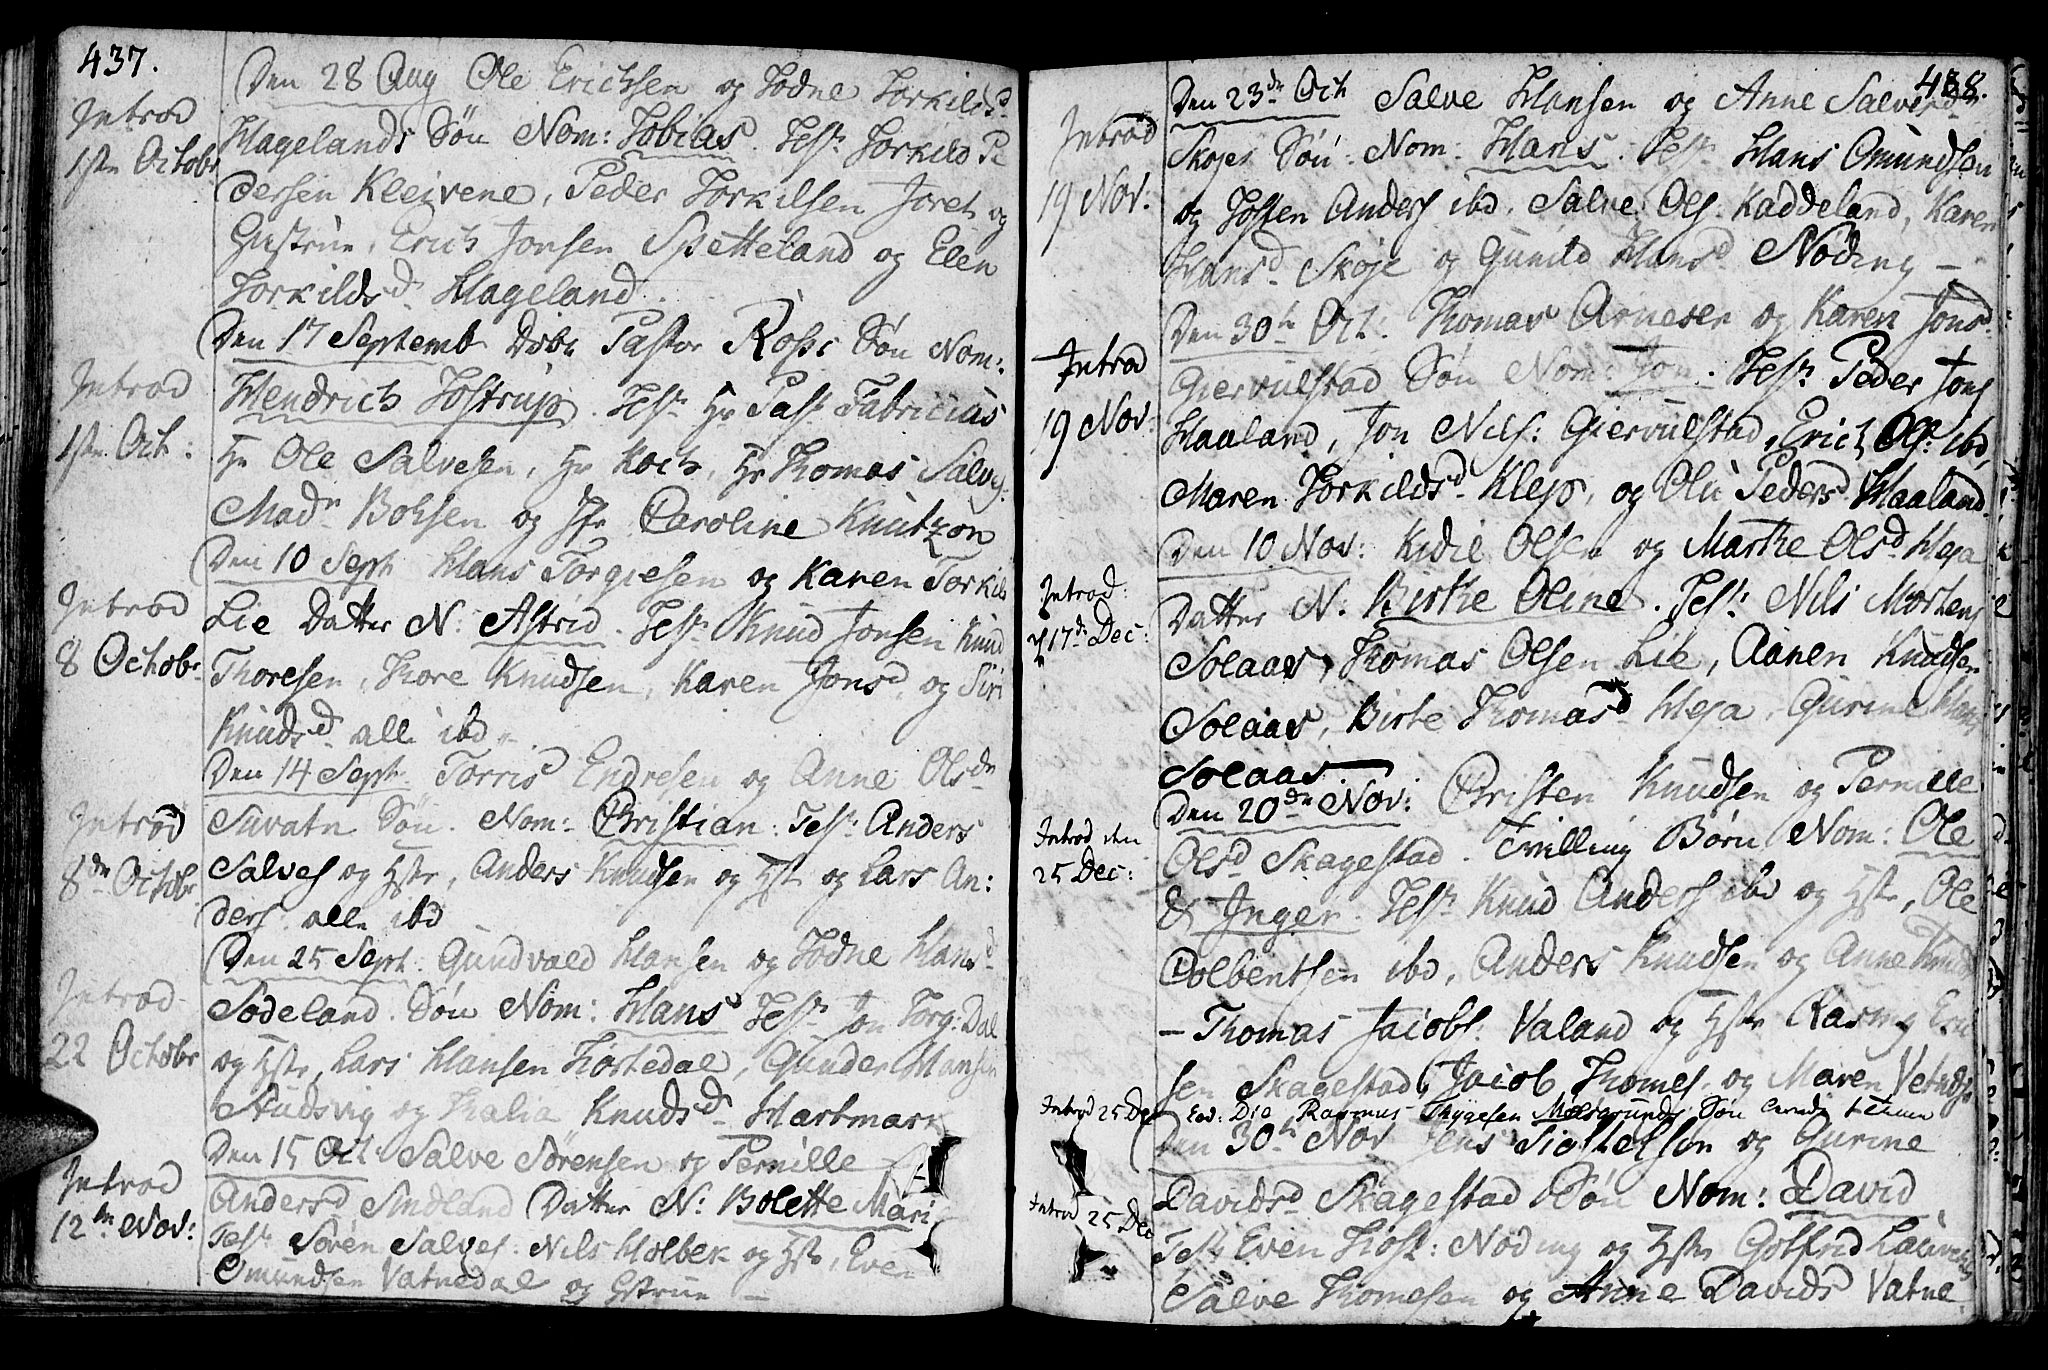 437.
Introd
1ste Octobr
Den 28 Aug Ole Erichsen og Todne Torkilsd
Hagelands Søn Nom: Tobias. Test: Torkild Pe
dersen Kleivene, Peder Torkilsen Joret og
Gustrue, Erich Jonsen Spetteland og Elen
Torkildsd Hageland.
Introd
1ste Oct:
Den 17 Septemb Døbt Pastor Rosss Søn Nom:
Hendrich Tostrup. Test: Hr Past: Fabricius
Hr Ole Salvesen, Hr Koch, Hr Thomas Salves:
Madm Bohsen og Jfr Caroline Knutzon
Introd
8 Octobr
Den 10 Sept Hans Torgiesen og Karen Torkils
Lie Datter N: Astrid. Test: Knud Jonsen Knud
Thoresen, Thore Knudsen, Karen Jonsd, og Siri
Knudsd alle ibd
Introd
8de Octobr
Den 14 Sept. Torris Endresen og Anne Olsdr
Suvatn Søn. Nom: Christian: Test: Anders
Salves og Hstr, Anders Knudsen og Hst og Lars An:
ders. alle ibd
Introd
22 Octobr
Den 25 Sept: Gundvald Hansen og Todne Hansd
Sødeland. Søn Nom: Hans Test: Jon Torg: Dal
og Hstr, Lars Hansen Hørtedal, Gunder Hansen
Studsvig og Thalia Knudsd Hartmark
Introd
12te Nov:
Den 15 Oct Salve Sørensen og Pernille
Andersd Sindland Datter N: Bolette Mari
Test: Søren Salves: Nils Holbek og Hstr, Even
Omundsen Vatnedal og Hstrue
438.
Introd
19 Nov:
Den 23de Oct Salve Hansen og Anne Salvesd
Skøjes Søn: Nom: Hans. Test: Hans Omundsen
og Josten Anders ibd. Salve Ols. Kaddeland, Karen
Hansd Skøje og Gunild Hansd Nøding
Introd
19 Nov:
Den 30te Oct: Thomas Arnesen og Karen Jonsd
Giervulstad Søn Nom: Jon. Test: Peder Jons
Haaland, Jon Nils: Giervulstad, Erich Ols: ibd,
Maren Torkildsd Klep, og Olu Pedersd Haaland.
Introd:
17de Dec:
Den 10 Nov: Kidil Olsen og Marthe Olsd Heja
Datter N: Birthe Oline. Test: Nils Mortens
Solaas, Thomas Olsen Lie, Aanen Knudsen
Solaas, Birte Thomasd Heja, Gurine Hans
Solaas.
Introd den
25 Dec:
Den 20de Nov: Christen Knudsen og Pernille
Olsd Skagestad. Tvilling Børn Nom: Ole
& Inger. Test: Knud Anders ibd og Hstr, Ole
Colbentsen ibd, Anders Knudsen og Anne Knuds
– Thomas Jacobs. Valand og Hstr Rasmg Eric
sen Skagestad, Jacob Thomes. og Maren Vetnds
Introd 25 Dec
Eod: Die Rasmus Thygesen Møsgrunds Søn
Introd 25 Dec
Den 30te Nov Jens Sigbielsen og Gurine
Davidsd Skagestad Søn Nom: David
Test: Even Tost: Nøding og Hstr Gotfrid
Salve Thomesen og Anne Davids Vatne